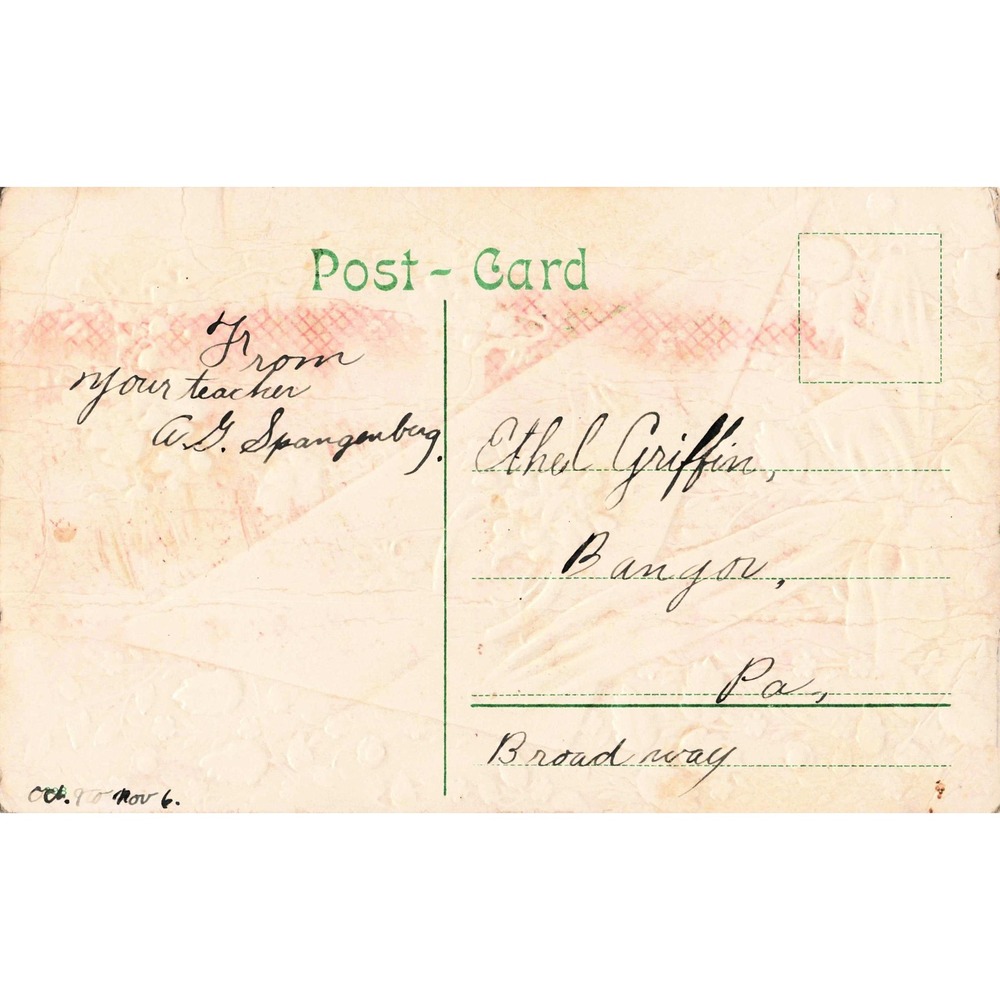 Post-Card
From
your teacher
A.G. Spangenberg.
Ethel Griffin,
Bangor,
Pa,
Broadway
Oct. Nov 6.